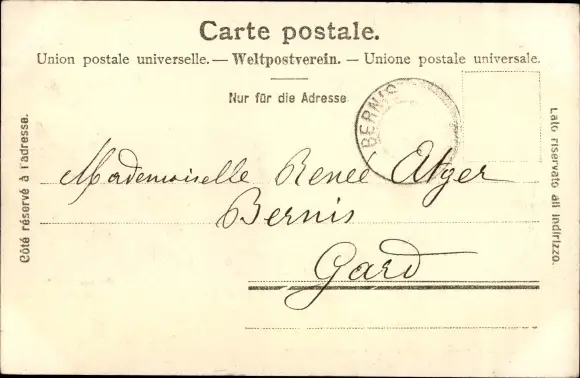 Carte postale.
Union postale universelle. — Weltpostverein. — Unione postale universale.
Nur für die Adresse
BERNIS
Côté réservé à l'adresse.
Lato riservato all indirizzo.
Mademoiselle Reneé Atger
Bernis
Gard